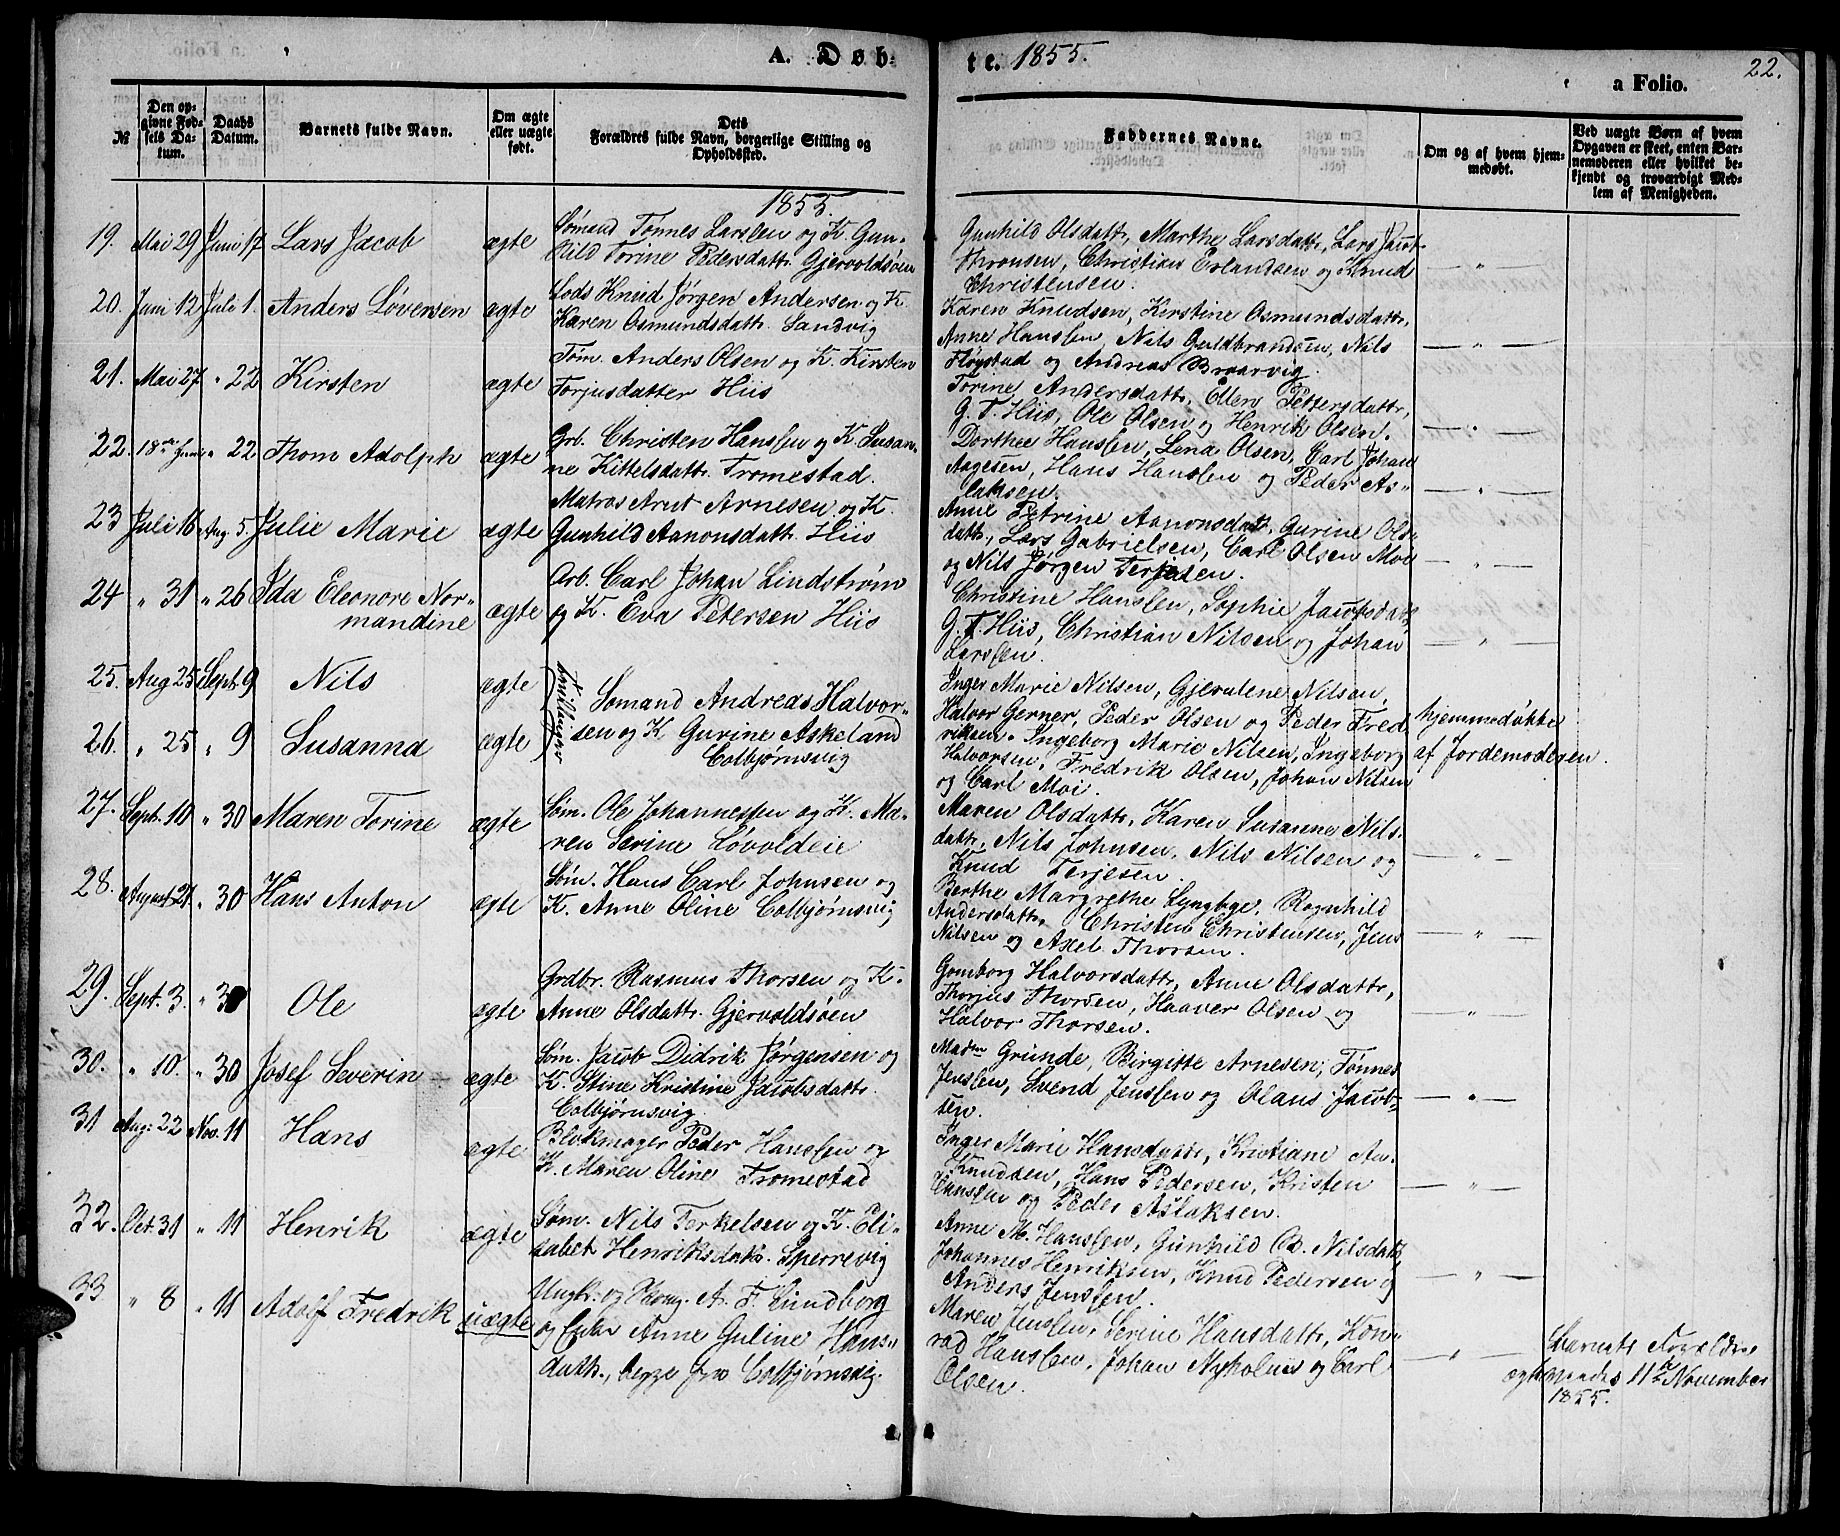 A. Døb-
te. 1855.
a Folio.
22.
№
Den op-
givne Fød-
sels Da-
tum.
Daabs
Datum.
Barnets fulde Navn.
Om ægte
eller uægte
født.
Dets
Forældres fulde Navn, borgerlige Stilling og
Opholdssted.
Faddernes Navne.
Om og af hvem hjem-
medøbt.
Ved uægte Børn af hvem
Opgaven er skeet, enten Bar-
nemoderen eller hvilket be-
kjendt og troværdigt Med-
lem af Menigheden.
1855.
19. Mai 29 Juni 17 Lars Jacob ægte
Sømand Tønnes Larssen og K. Gun-
hild Torine Pedersdattr. Gjervoldsøen
Gunhild Olsdattr, Marthe Larsdattr, Lars Jacob
Thronsen, Christian Erlandsen og Knud
Christensen.
— " —
20. Juni 12 Juli 1. Anders Løvensen ægte
Lods Knud Jørgen Andersen og K.
Karen Osmundsdattr. Sandvig
Karen Knudsen, Kirstine Osmundsdattr,
Anne Hanssen, Nils Guldbrandsen, Nils
Fløystad og Andreas Braarvig.
— " —
21. Mai 27 " 22 Kirsten ægte
Tøm. Anders Olsen og K. Kirsten
Torjusdatter Hiis
Torine Andersdattr, Ellen Pettersdattr,
G. T. Hiis, Ole Olsen og Henrik Olsen.
— " —
22. 18de Juni " 22 Thom Adolph ægte
Arb. Christen Hanssen og K. Susan-
ne Kittelsdattr. Tromestad.
Dorthee Hanssen, Lena Olsen, Carl Johan
Aagesen, Hans Hanssen og Peder As-
laksen.
— " —
23 Juli 16 Aug. 5 Julie Marie ægte
Matros Arnt Arnesen og K.
Gunhild Aanonsdattr. Hiis
Anne Petrine Aanonsdatt, Gurine Ols-
dattr, Lars Gabrielsen, Carl Olsen Moe
og Nils Jørgen Terjesen.
— " —
24 " 31 " 26 Ida Eleonore Nor-
mandine ægte
Arb. Carl Johan Lindstrøm
og K. Eva Petersen Hiis
Christine Hanssen, Sophie Jacobsdattr,
G. T. Hiis, Christian Nilsen og Johan
Larssen.
— " —
25. Aug 25 Sept. 9 Nils ægte
26. " 25 " 9 Susanna ægte
tvillinger
Sømand Andreas Halvor-
sen og K Gurine Askeland
Colbjørnsvig
Inger Marie Nilsen, Gjerulene Nilsen,
Halvor Gerner, Peder Olsen og Peder Fred
riksen. Ingeborg Marie Nilsen, Ingeborg
Halvorsen, Fredrik Olsen, Johan Nilsen
og Carl Moi.
hjemmedøbte
af Jordemoderen.
27. Sept. 10 " 30 Maren Torine ægte
Søm. Ole Johannessen og K. Ma-
ren Serine Løvoldeie
Maren Olsdattr, Karen Susanne Nils-
dattr, Nils Johnsen, Nils Nilsen og
Knud Terjesen.
— " —
28. August 21 " 30 Hans Anton ægte
Søm. Hans Carl Johnsen og
K. Anne Oline Colbjørnsvig
Berthe Margrethe Lyngbye, Ragnhild
Andersdattr, Christen Christensen, Jens
Nilsen og Axel Thorsen.
— " —
29. Sept. 3. " 30 Ole ægte
Grdbr. Rasmus Thorsen og K.
Anne Olsdattr. Gjervoldsøen
Gomborg Halvorsdattr, Anne Olsdattr,
Thorjus Thorsen, Haaver Olsen og
Halvor Thorsen.
— " —
30. " 10. " 30 Josef Severin ægte
Søm. Jacob Didrik Jørgensen og
K. Stine Kristine Jacobsdattr.
Colbjørnsvig.
Madm Grunde, Birgitte Arnesen, Tønnes
Jenssen, Svend Jenssen og Olaus Jacob-
sen.
— " —
31 Aug: 22 Nov. 11 Hans ægte
Blokmager Peder Hanssen og
K. Maren Oline Tromestad
Inger Marie Hansdattr, Kristiane An.
Knudsen, Hans Pedersen, Kristen
Hanssen og Peder Aslaksen.
— " —
32. Oct. 31 " 11 Henrik ægte
Søm. Nils Terkelsen og K. Eli-
sabet Henriksdattr. Sperrevig
Anne M. Hanssen, Gunhild Nilsdattr,
Johannes Henriksen, Knud Pedersen og
Anders Jenssen.
— " —
33 " 8 " 11 Adolf Fredrik uægte
Ungk. og A. F. Lundborg
og Enke Anne Guline Hans-
datt., begge fra Colbjørnsvig.
Maren Jenssen, Serine Hansdattr, Kon-
rad Hanssen, Johan Nyholm og Carl
Olsen.
— " —
Barnets Forældre
ægteviedes 11te November
1855.